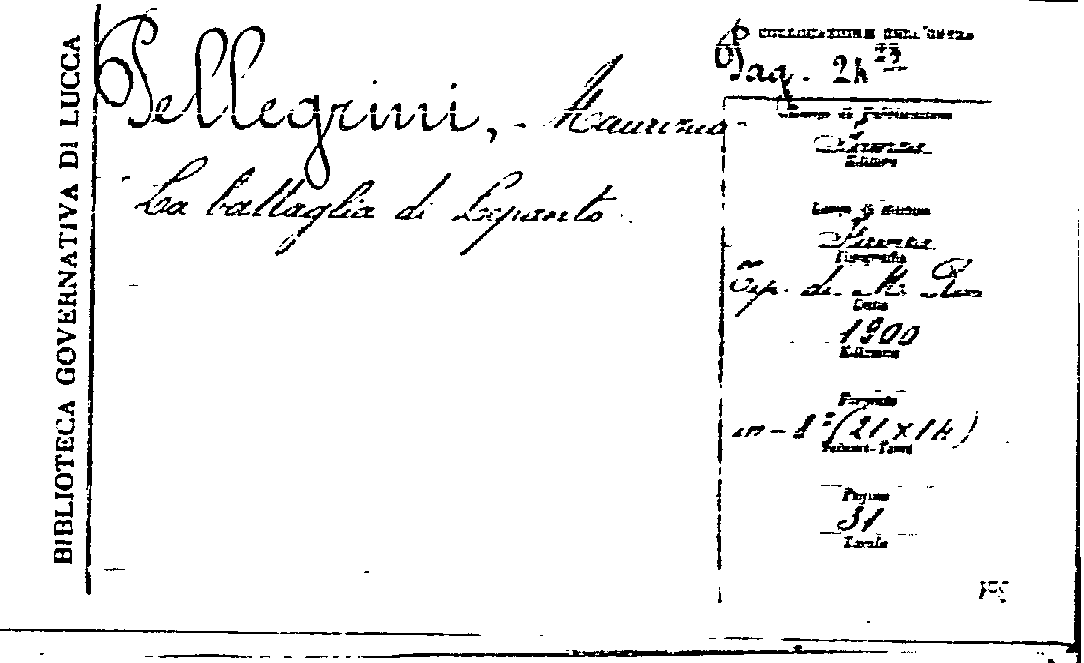 BIBLIOTECA GOVERNATIVA DI LUCCA
Pellegrini, Maurizio
La battaglia di Lepanto
COLLOCAZIONE DELL'OPERA
Pag. 24
Luogo di Pubblicazione
Firenze
Editore
Luogo di stampa
Firenze
Tipografia
Tip. di M. Ricci
Data
1900
Edizione
Formato
in-8° (21 x 14)
Volumi-Tomi
Pagine
31
Tavole